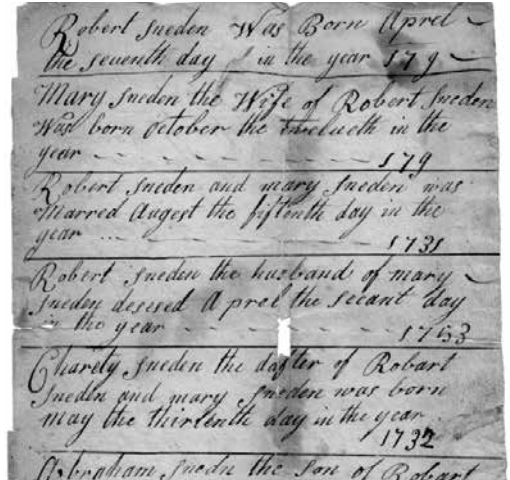 Robert Sneden Was Born Aprel
the seventh day in the year 179
Mary Sneden the Wife of Robert Sneden
Was born October the twelueth in the
year 179
Robert Sneden and mary Sneden was
Marred Augest the fiftenth day in the
year 1731
Robert Sneden the husband of mary
Sneden desesed Aprel the secant day
in the year 1753
Charety Sneden the dafter of Robart
Sneden and mary Sneden was born
may the thirtenth day in the year
1732
Abraham Snedn the Son of Robart